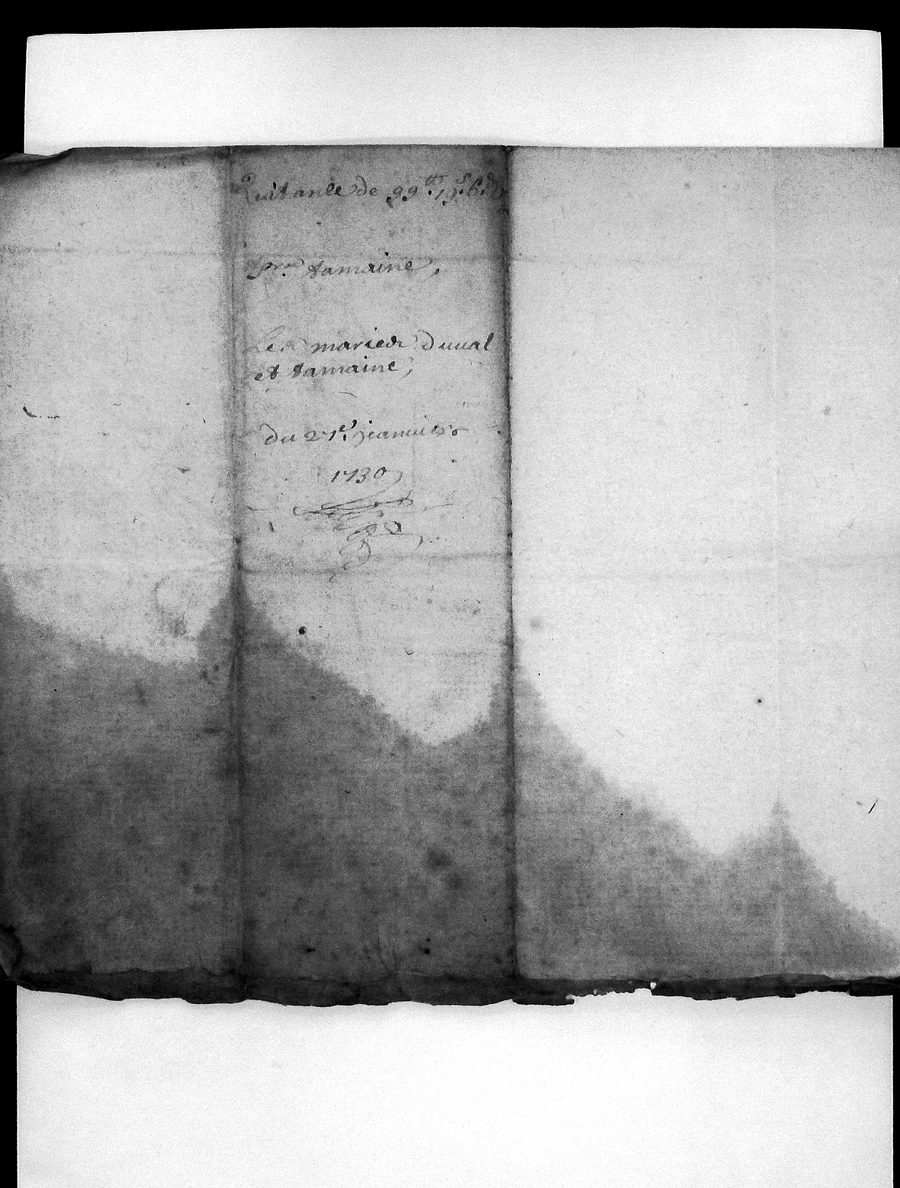 Quitance de 99tt 19s 6d
pre tamaine,
Les mariés duual
et tamaine,
du 27e. jeanuier
1730